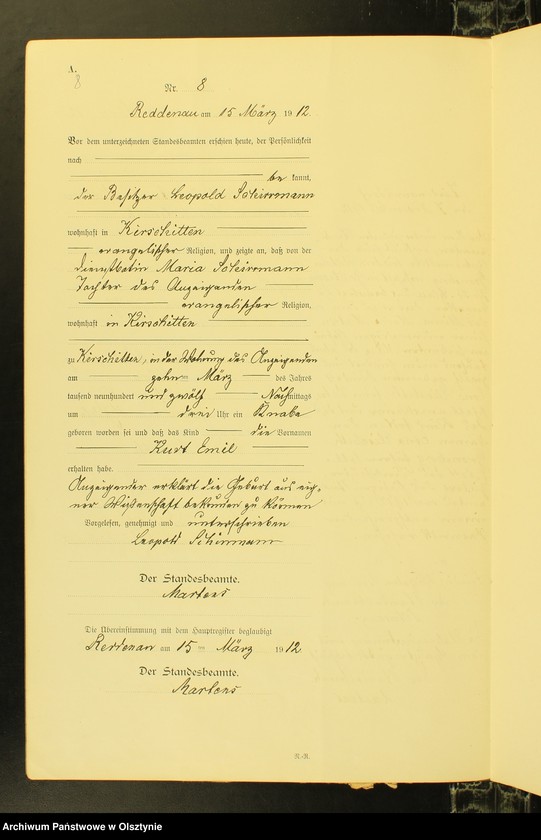 A.
8
Nr. 8
Reddenau am 15 März 1912.
Vor dem unterzeichneten Standesbeamten erschien heute, der Persönlichkeit
nach
be kannt,
der Besitzer Leopold Schirrmann
wohnhaft in Kirschitten
evangelischer Religion, und zeigte an, daß von der
Dienstbotin Maria Schirrmann
Tochter des Anzeigenden
evangelischer Religion,
wohnhaft in Kirschitten
zu Kirschitten, in der Wohnung des Anzeigenden
am zehn ten März des Jahres
tausend neunhundert und zwölf Nachmittags
um drei Uhr ein Knabe
geboren worden sei und daß das Kind die Vornamen
Kurt Emil
erhalten habe.
Anzeigender erklärt die Geburt aus eig-
ner Wissenschaft bekunden zu können
Vorgelesen, genehmigt und unterschrieben
Leopold Schirrmann
Der Standesbeamte.
Martens
Die Übereinstimmung mit dem Hauptregister beglaubigt
Reddenau am 15 ten März 1912.
Der Standesbeamte.
Martens
R.-R.
Archiwum Państwowe w Olsztynie